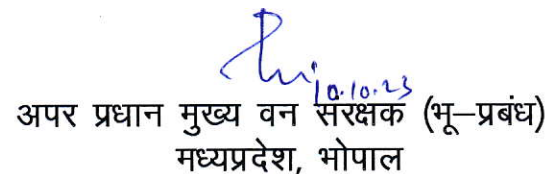 10.10.23
अपर प्रधान मुख्य वन संरक्षक (भू–प्रबंध)
मध्यप्रदेश, भोपाल